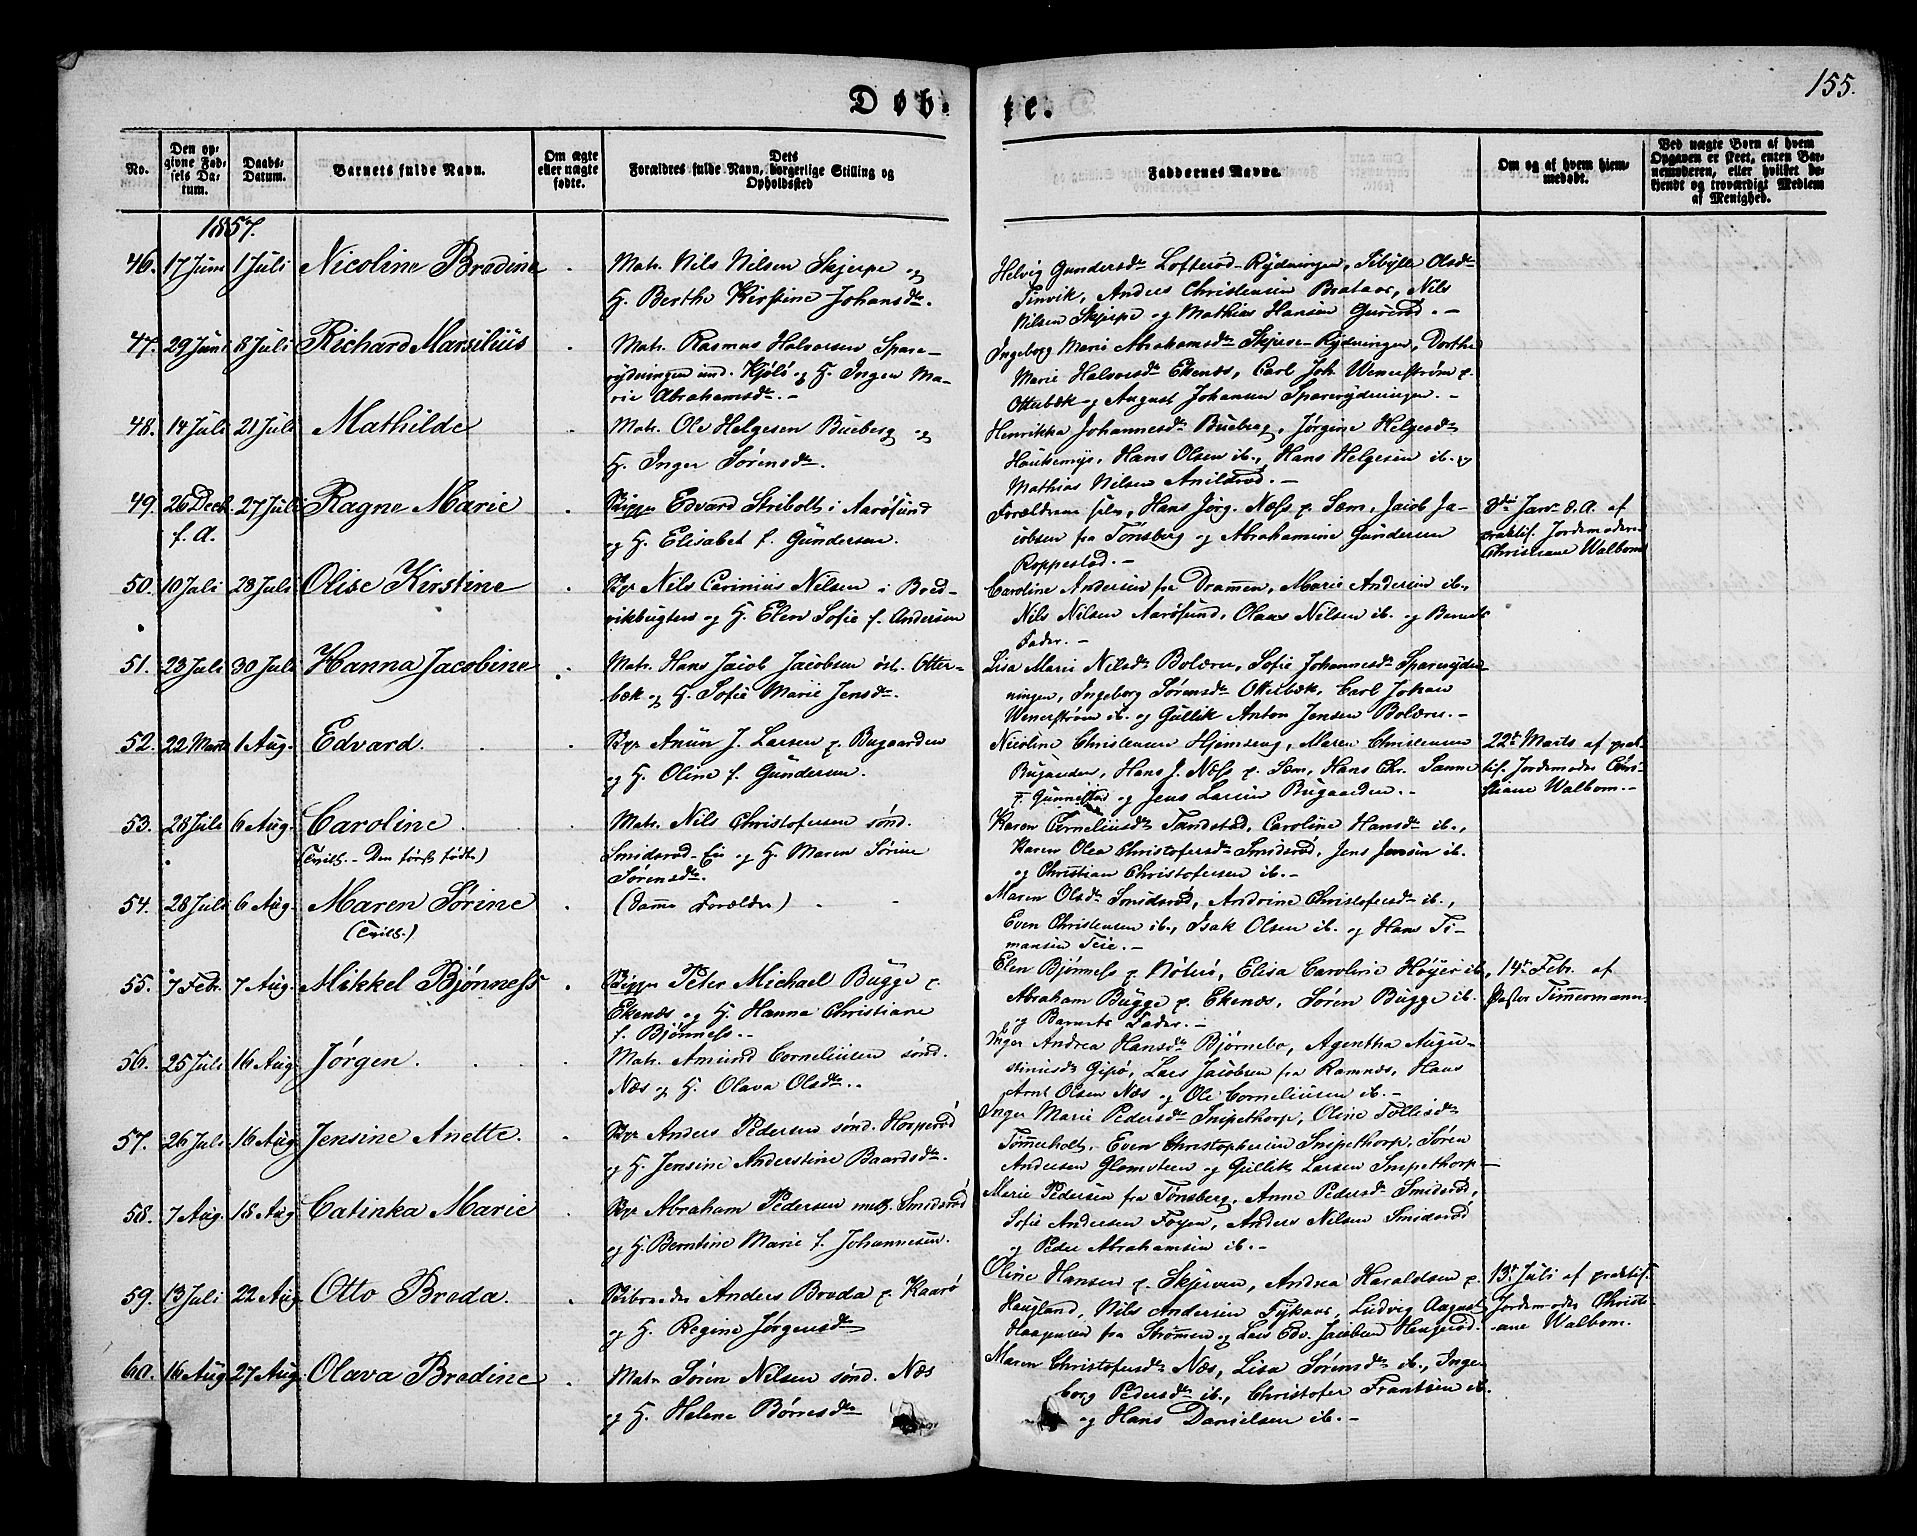 155.
Døb-
te.
No.
Den op-
givne Fød-
sels Da-
tum.
Daabs-
Datum.
Barnets fulde Navn.
Om ægte
eller uægte
fødte.
Dets
Forældres fulde Navn, borgerlige Stilling og
Opholdssted
Faddernes Navne.
Om og af hvem hjem-
medøbt.
Ved uægte Børn af hvem
Opgaven er skeet, enten Bar-
nemoderen, eller hvilket be-
kjendt og troværdigt Medlem
af Menighed.
1857.
46. 17 Juni 1 Juli Nicoline Bredine
Matr. Nils Nilsen Skjerpe og
H. Berthe Kirstine Johansdr.
Helvig Gundersdr Lofterød-Rydningen, Sibylle Olsdr
Tinvik, Anders Christensen Brataas, Nils
Nilsen Skjerpe og Mathias Hansen Gurerød.-
47. 29 Juni 8 Juli Richard Marsilius
Matr. Rasmus Halvorsen Spare-
rydningen und. Kjølø og H. Inger Ma-
rie Abrahamsdr.-
Ingeborg Marie Abrahamsdr Skjerve-Rydningen, Dorthe
Marie Halvorsdr Ekenæs, Carl Joh. Wenerstrøm p.
Otterbæk og August Johansen Sparerydningen.-
48. 14 Juli 21 Juli Mathilde
Matr. Ole Helgesen Bueberg og
H. Inger Sørensdr.
Henrikka Johannesdr Bueberg, Jørgine Helgesdr
Houkemyr, Hans Olsen ib., Hans Helgesen ib. og
Mathias Nilsen Anildrød.-
49. 26 Decb. 27 Juli Ragne Marie
f. A.
Skipper Edvard Stribolt i Aarøsund
og H. Elisabet f. Gundersen.
Forældrene selv, Hans Jørg. Næss p. Sem, Jacob Ja-
cobsen fra Tønsberg og Abrahamine Gundersen
Roppestad.
3die Janr. d. A. af
praktis. Jordemoderen
Christiane Walbom
50. 10 Juli 28 Juli Olise Kirstine
Bgr Nils Carinius Nilsen i Bred-
vikbugten og H. Elen Sofie f. Andersen
Caroline Andersen fra Drammen, Marie Andersen ib.,
Nils Nilsen Aarøsund, Olaus Nilsen ib. og Barnets
Fader.-
51. 23 Juli 30 Juli Hanna Jacobine
Matr. Hans Jacob Jacobsen øst. Otter-
bæk og H. Sofie Marie Jensdr.
Lisa Marie Nilsdr Bolærne, Sofie Johannesdr Sparesyd-
ningen, Ingeborg Sørensdr Otterbæk, Carl Johan
Wenerstrøm ib. og Gullik Anton Jensen Bolærne.-
52. 22 Marts 1 Aug. Edvard.
Bgr Anun J. Larsen p. Bugaarden
og H. Oline f. Gundersen.
Nicoline Christensen Hjemseng, Maren Christensen
Bugaarden, Hans J. Næss p. Sem, Hans Chr. Sanne
p. Gunnestad og Jens Larsen Bugaarden.-
22de Marts af prak-
tis. Jordemoder Chris-
tiane Walbom.-
53. 28 Juli 6 Aug. Caroline
(Tvill.- Den først fødte)
Matr. Nils Christofersen sønd.
Smidsrød-Eie og H. Maren Sørine
Sørensdr.
Karen Corneliusdr Tandstad, Caroline Hansdr ib.,
Karen Olea Christofersdr Smidsrød, Jens Jensen ib.
og Christian Christofersen ib.-
54. 28 Juli 6 Aug. Maren Sørine
(Tvill.)
(Samme Forældre)
Maren Olsdr Smidsrød, Andrine Christofersdr ib.,
Even Christensen ib., Isak Olsen ib. og Hans Ti-
mansen Teie.-
55. 7 Febr. 7 Aug. Mikkel Bjønness
Skipper Peter Michael Bugge p.
Ekenæs og H. Hanna Christiane
f. Bjønness.-
Elen Bjønness p. Nøterø, Elisa Caroline Høyer ib.,
Abraham Bugge p. Ekenæs, Søren Bugge ib.
og Barnets Fader.-
14de Febr. af
Pastor Timmermann
56. 25 Juli 16 Aug. Jørgen.
Matr. Amund Corneliusen sønd.
Næs og H. Olava Olsdr.-
Inger Andrea Hansdr Bjørnebo, Agentha Augu-
stinusdr Gipø, Lars Jacobsen fra Ramnæs, Hans
Arnt Olsen Næs og Ole Corneliusen ib.-
57. 26 Juli 16 Aug. Jensine Anette.
Bgr Anders Pedersen sønd. Horperød
og H. Jensine Anderstine Baardsdr.
Inger Marie Pedersdr Snipethorp, Oline Tollisdr
Tømmerholt, Even Christophersen Snipethorp, Søren
Andersen Glomsteen og Gullik Larsen Snipethorp-
58. 7 Aug. 18 Aug. Catinka Marie
Bgr Abraham Pedersen mell. Smidsrød
og H. Berntine Marie f. Johannesen.
Marie Pedersen fra Tønsberg, Anne Pedersdr Smidsrød,
Sofie Andersen Foyen, Anders Nilsen Smidsrød
og Peder Abrahamsen ib.-
59. 13 Juli 22 Aug. Otto Breda.
Anders Breda p. Kaarø
og H. Regine Jørgensdr
Oline Hansen p. Skjerven, Andrea Haraldsen p.
Haugland, Nils Andersen Fykaas, Ludvig August
Haagensen fra Strømmen og Lars Edv. Jacobsen Haugerød.
13de Juli af praktis.
Jordemoder Christi-
ane Walbom.
60. 16 Aug. 27 Aug. Olava Bredine
Matr Søren Nilsen sønd. Næs
og H. Helene Børresdr
Maren Christofersdr Næs, Lisa Sørensdr ib., Inge-
borg Pedersdr ib., Christofer Frantsen ib.
og Hans Danielsen ib.-